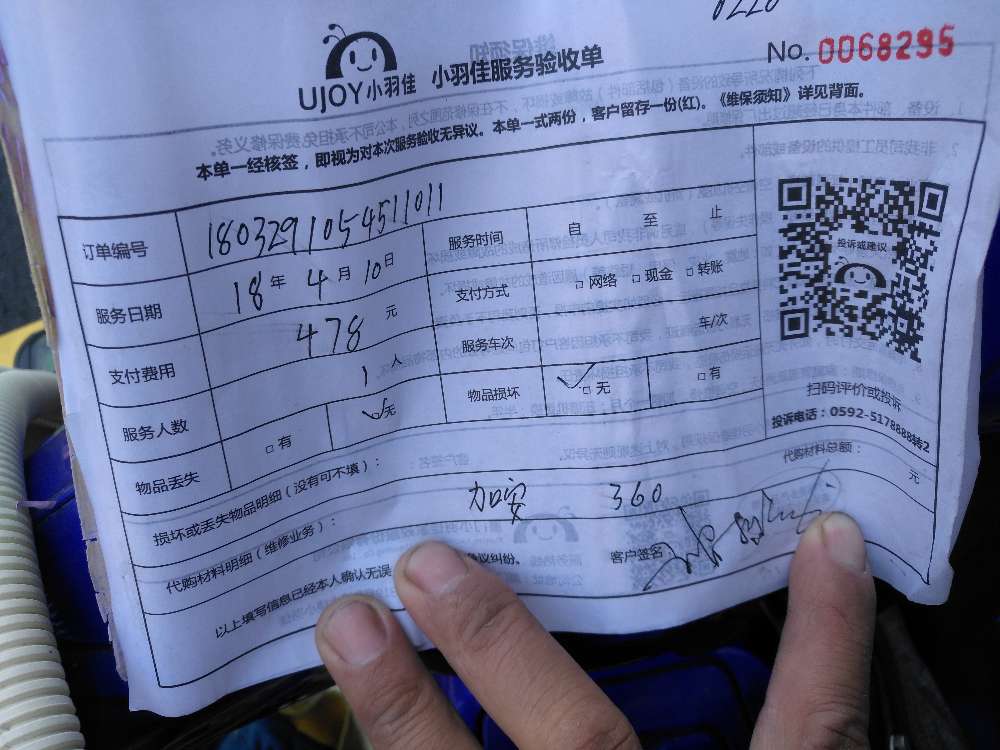 0220
No. 0068295
UJOY小羽佳 小羽佳服务验收单
本单一经核签，即视为对本次服务验收无异议。本单一式两份，客户留存一份(红)。《维保须知》详见背面。
订单编号 1803291054511011 服务时间 自 至 止
服务日期 18年4月10日 支付方式 □网络 □现金 □转账
支付费用 478 元 服务车次 车/次
服务人数 1 人 物品损坏 ✓□无 □有
物品丢失 □有 ✓无
投诉或建议
扫码评价或投诉
投诉电话：0592-5178888转2
损坏或丢失物品明细（没有可不填）：
代购材料明细（维修业务）： 加安 360 代购材料总额： 元
以上填写信息已经本人确认无误 议纠纷。 客户签名